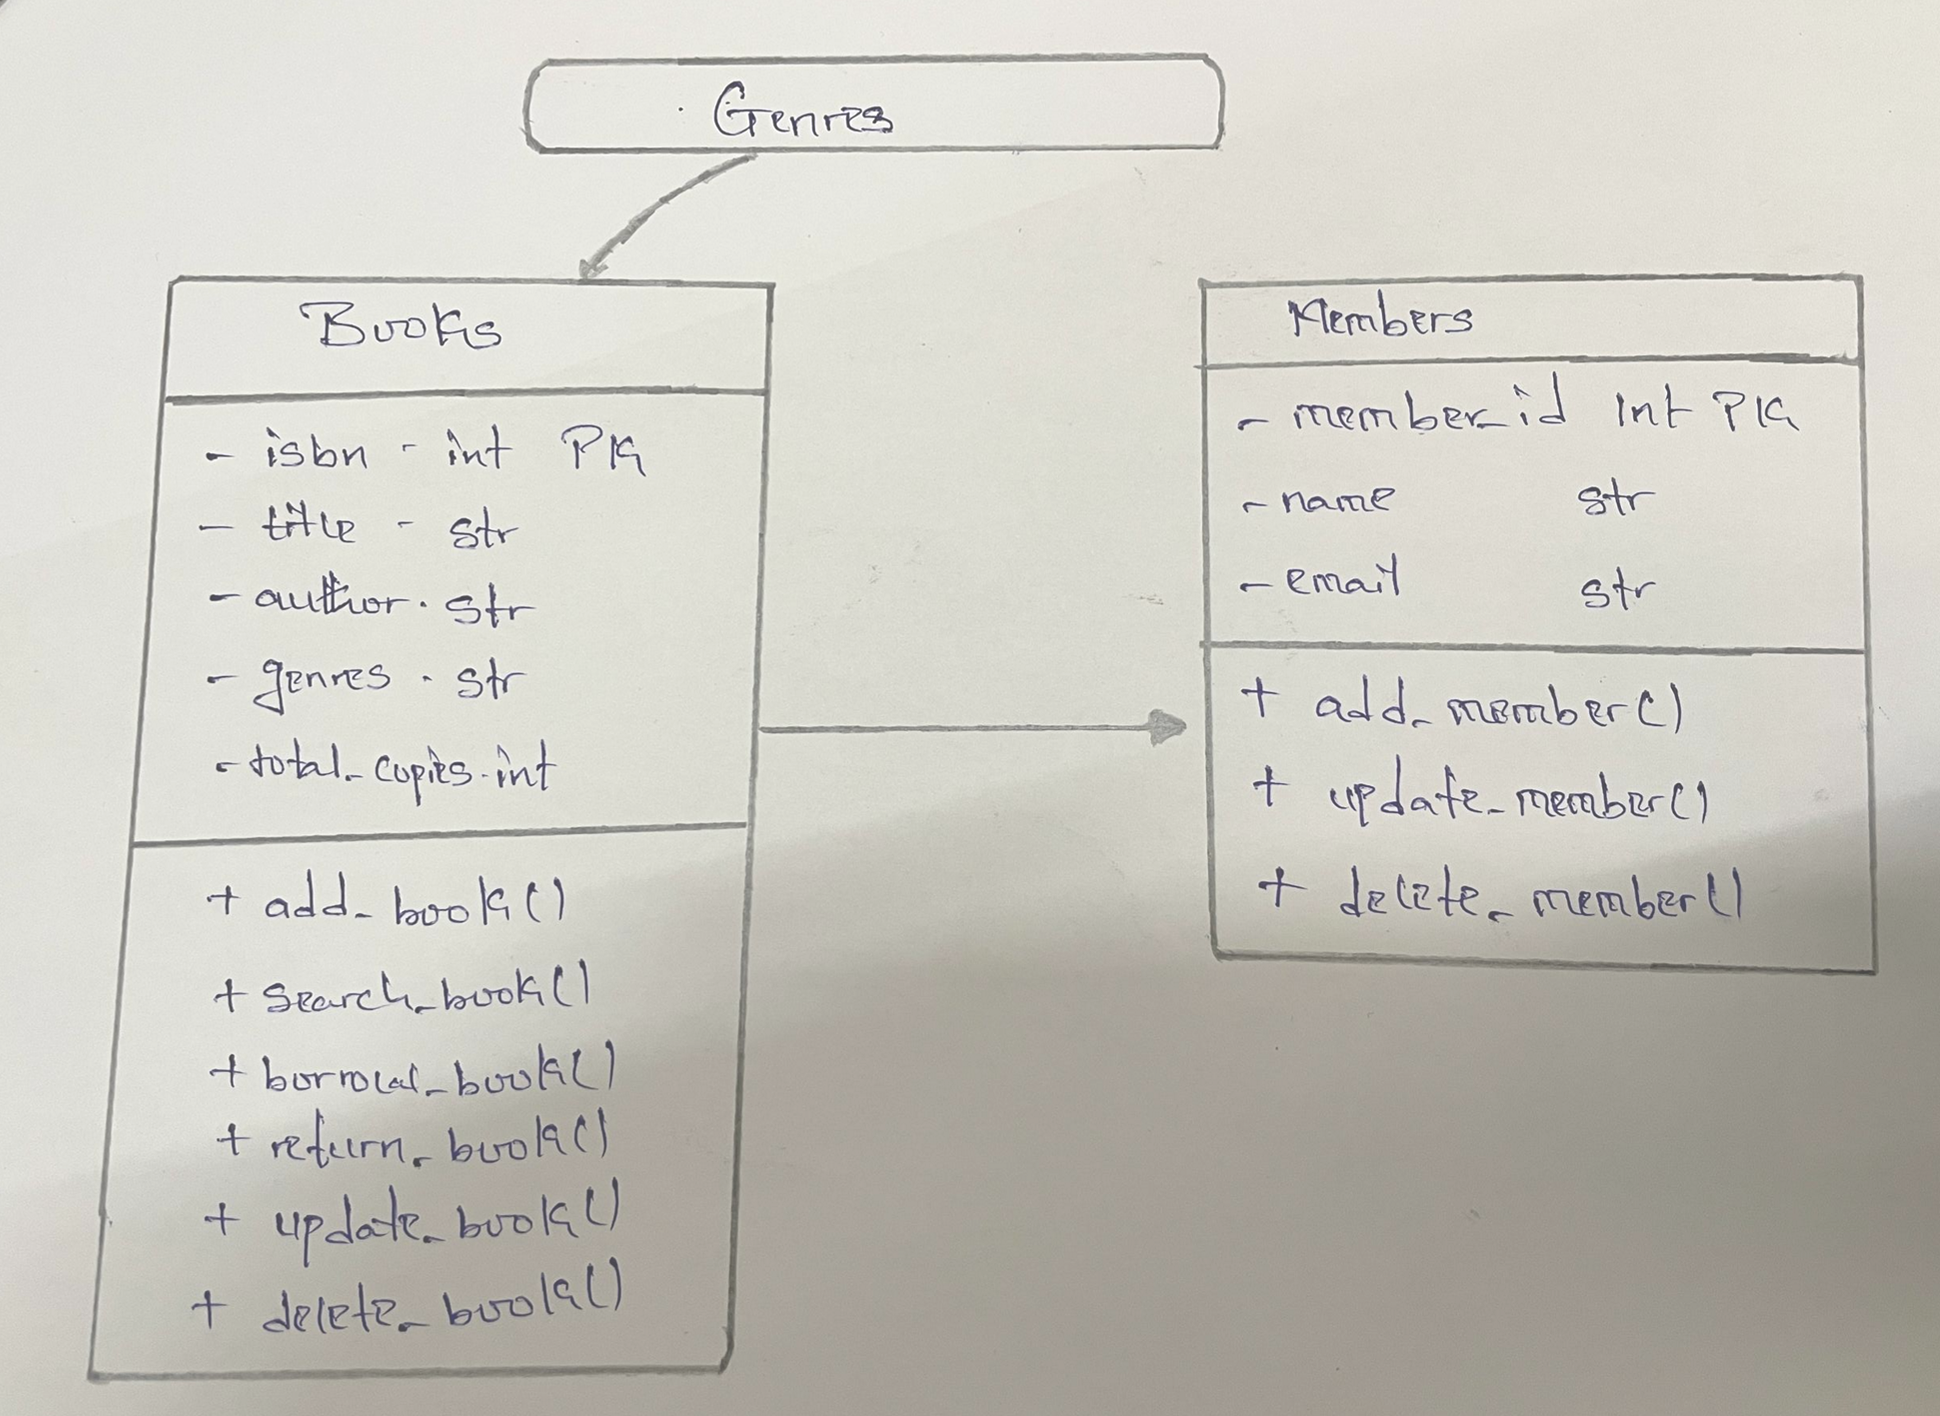 Genres
Books
- isbn - int PK
- title - str
- author. str
- genres . str
- total_copies.int
+ add_book()
+ search_book()
+ borrow_book()
+ return_book()
+ update_book()
+ delete_book()
Members
- member_id Int PK
- name str
- email str
+ add_member()
+ update_member()
+ delete_member()